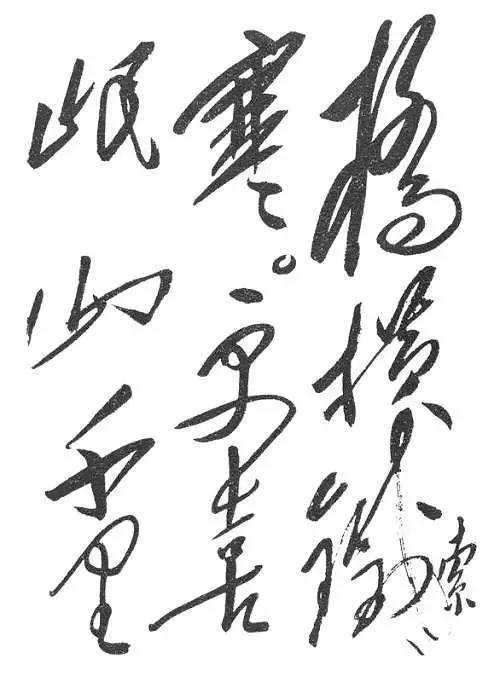 橋横鐵索
寒。更喜
岷山千里